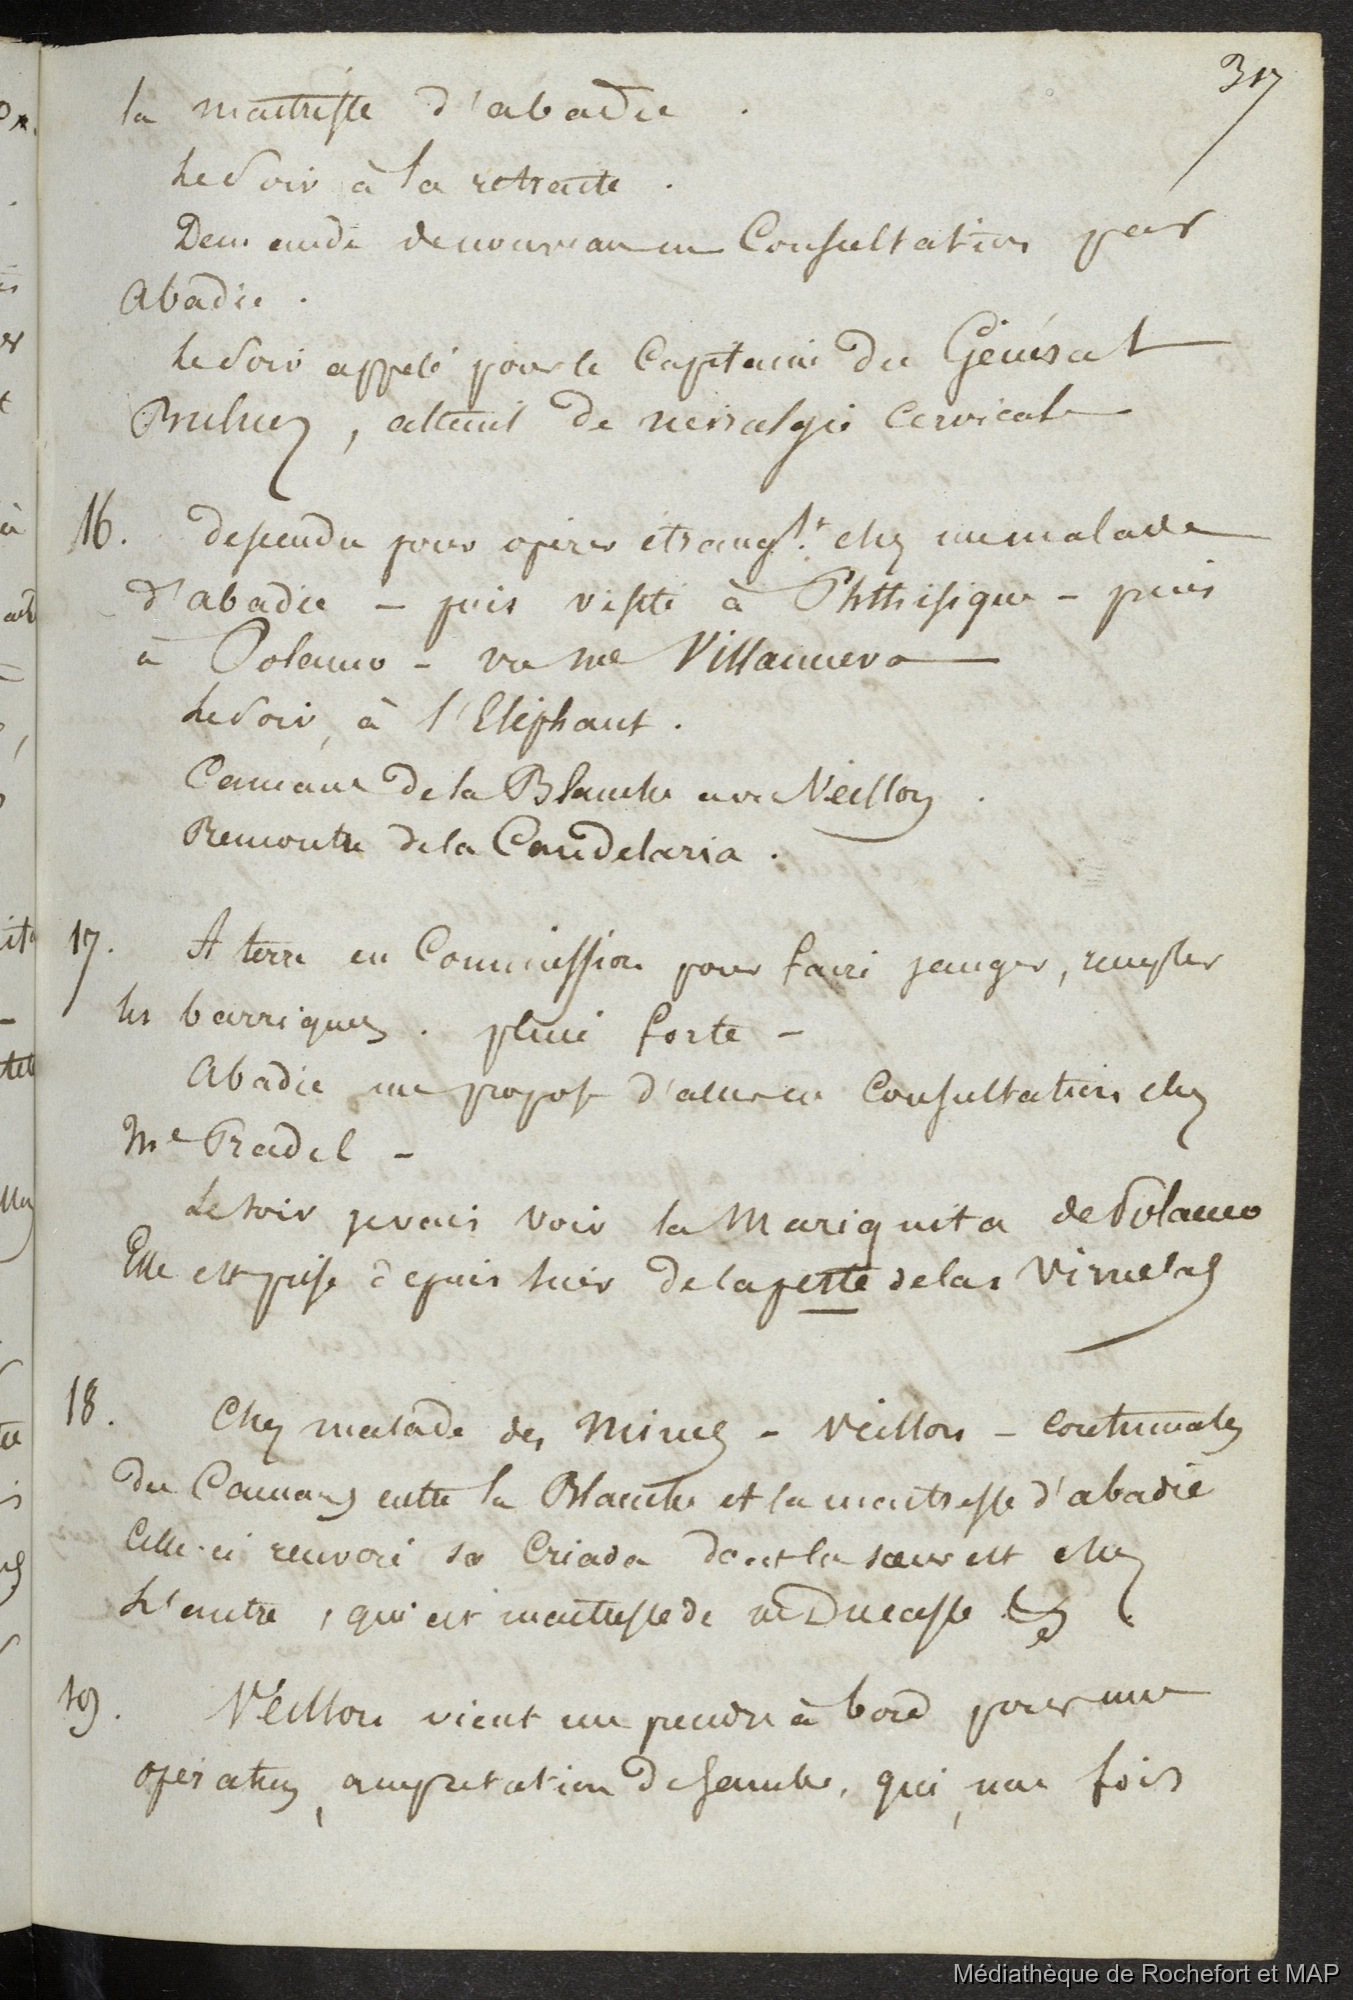 317
la maitresse d'abadie.
Le Soir à la retraite.
Demande de nouveau en Consultation par
Abadie.
Le Soir appelé pour le Capitaine du Général
Bruhnez, atteint de nevralgie Cervicale
16. descendu pour opérer étrangl.t chez un malade
d'abadie – puis visite à Phthisique – puis
à Solano – vu Me Villanueva
Le Soir, à l'Eléphant.
Cancans de la Blanche avec Veillon.
Rencontre de la Candelaria.
17. A terre en Commission pour faire jauger, remplir
les barriques. pluie forte –
Abadie me propose d'aller en Consultation chez
Me Pradel –
Le soir je vais voir la Mariquita de Solano
Elle est prise depuis hier de la peste de las Viruelas
18. Chez malade des Mines – Veillon – continuation
du Cancans entre la Blanche et la maitresse d'abadie
Celle-ci renvoie sa Criada dont la sœur est chez
L'autre, qui est maitresse de m Ducasse
19. Veillon vient me prendre à bord pour une
opération, amputation de Jambe, qui, une fois
Médiathèque de Rochefort et MAP